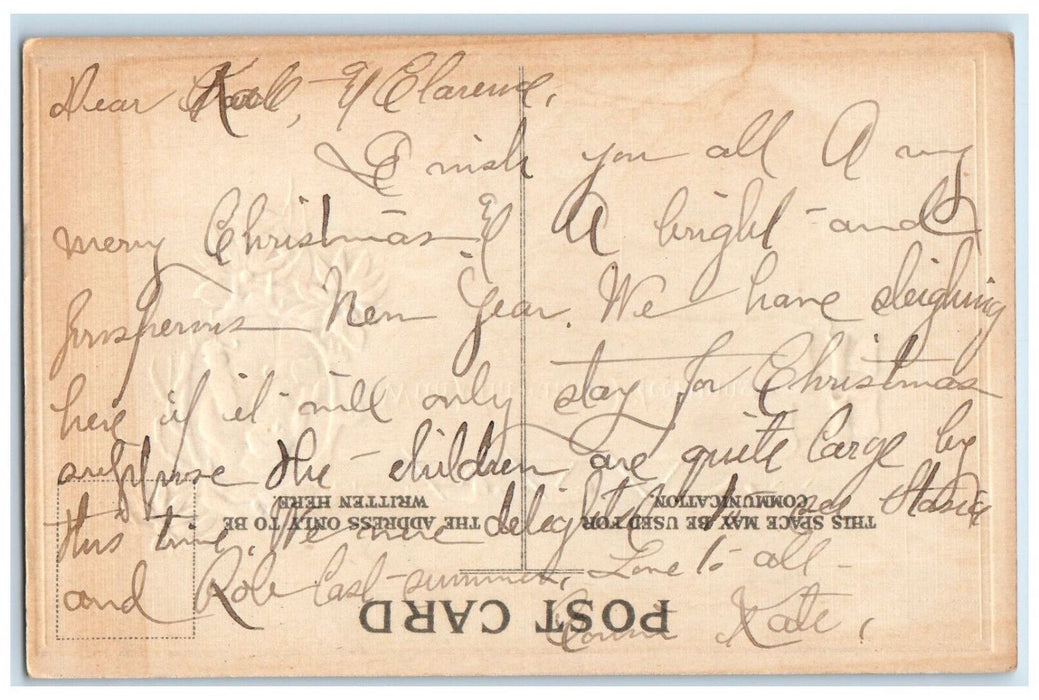 Dear & Clarence,
I wish you all A very
merry Christmas & A bright and
prosperous New Year. We have sleighing
here if it will only stay for Christmas
suppose the children are quite large by
this time. We were delighted to see Stasia
and Rob last summer. Love to all
Kate,
THIS SPACE MAY BE USED FOR
COMMUNICATION.
THE ADDRESS ONLY TO BE
WRITTEN HERE.
POST CARD